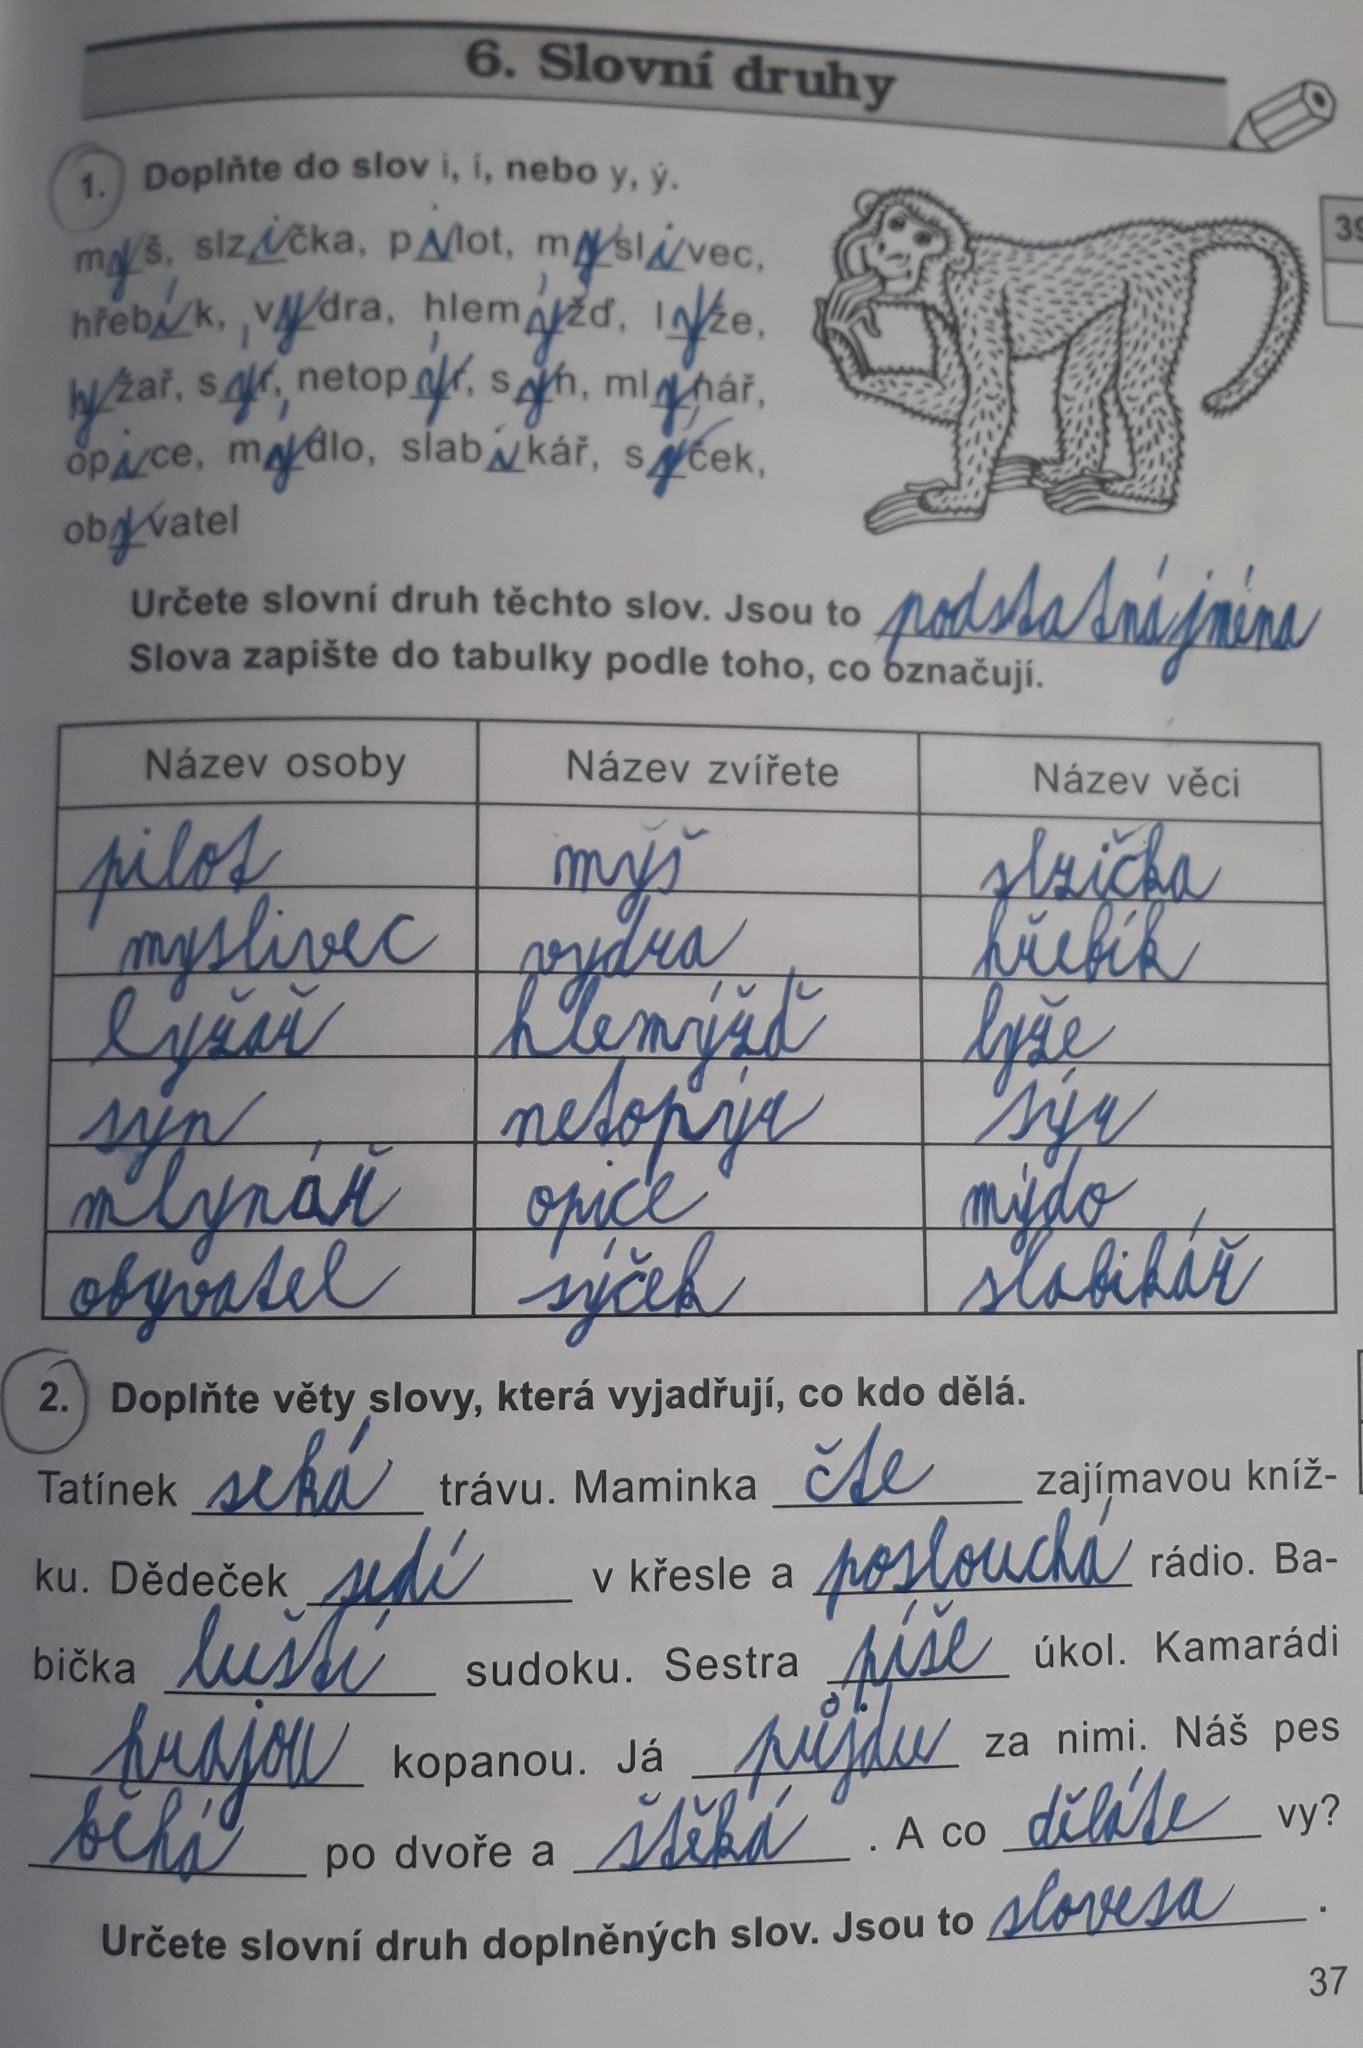 6. Slovní druhy
1. Doplňte do slov i, í, nebo y, ý.
myš, slzička, pilot, myslivec,
hřebík, vydra, hlemýžď, lyže,
lyžař, sýr, netopýr, syn, mlynář,
opice, mýdlo, slabikář, sýček,
obyvatel
39
Určete slovní druh těchto slov. Jsou to podstatná jména
Slova zapište do tabulky podle toho, co označují.
Název osoby Název zvířete Název věci
pilot myš slzička
myslivec vydra hřebík
lyžař hlemýžď lyže
syn netopýr sýr
mlynář opice mýdo
obyvatel sýček slabikář
2. Doplňte věty slovy, která vyjadřují, co kdo dělá.
Tatínek seká trávu. Maminka čte zajímavou kníž-
ku. Dědeček sedí v křesle a poslouchá rádio. Ba-
bička luští sudoku. Sestra píše úkol. Kamarádi
hrajou kopanou. Já půjdu za nimi. Náš pes
běhá po dvoře a štěká . A co děláte vy?
Určete slovní druh doplněných slov. Jsou to slovesa .
37